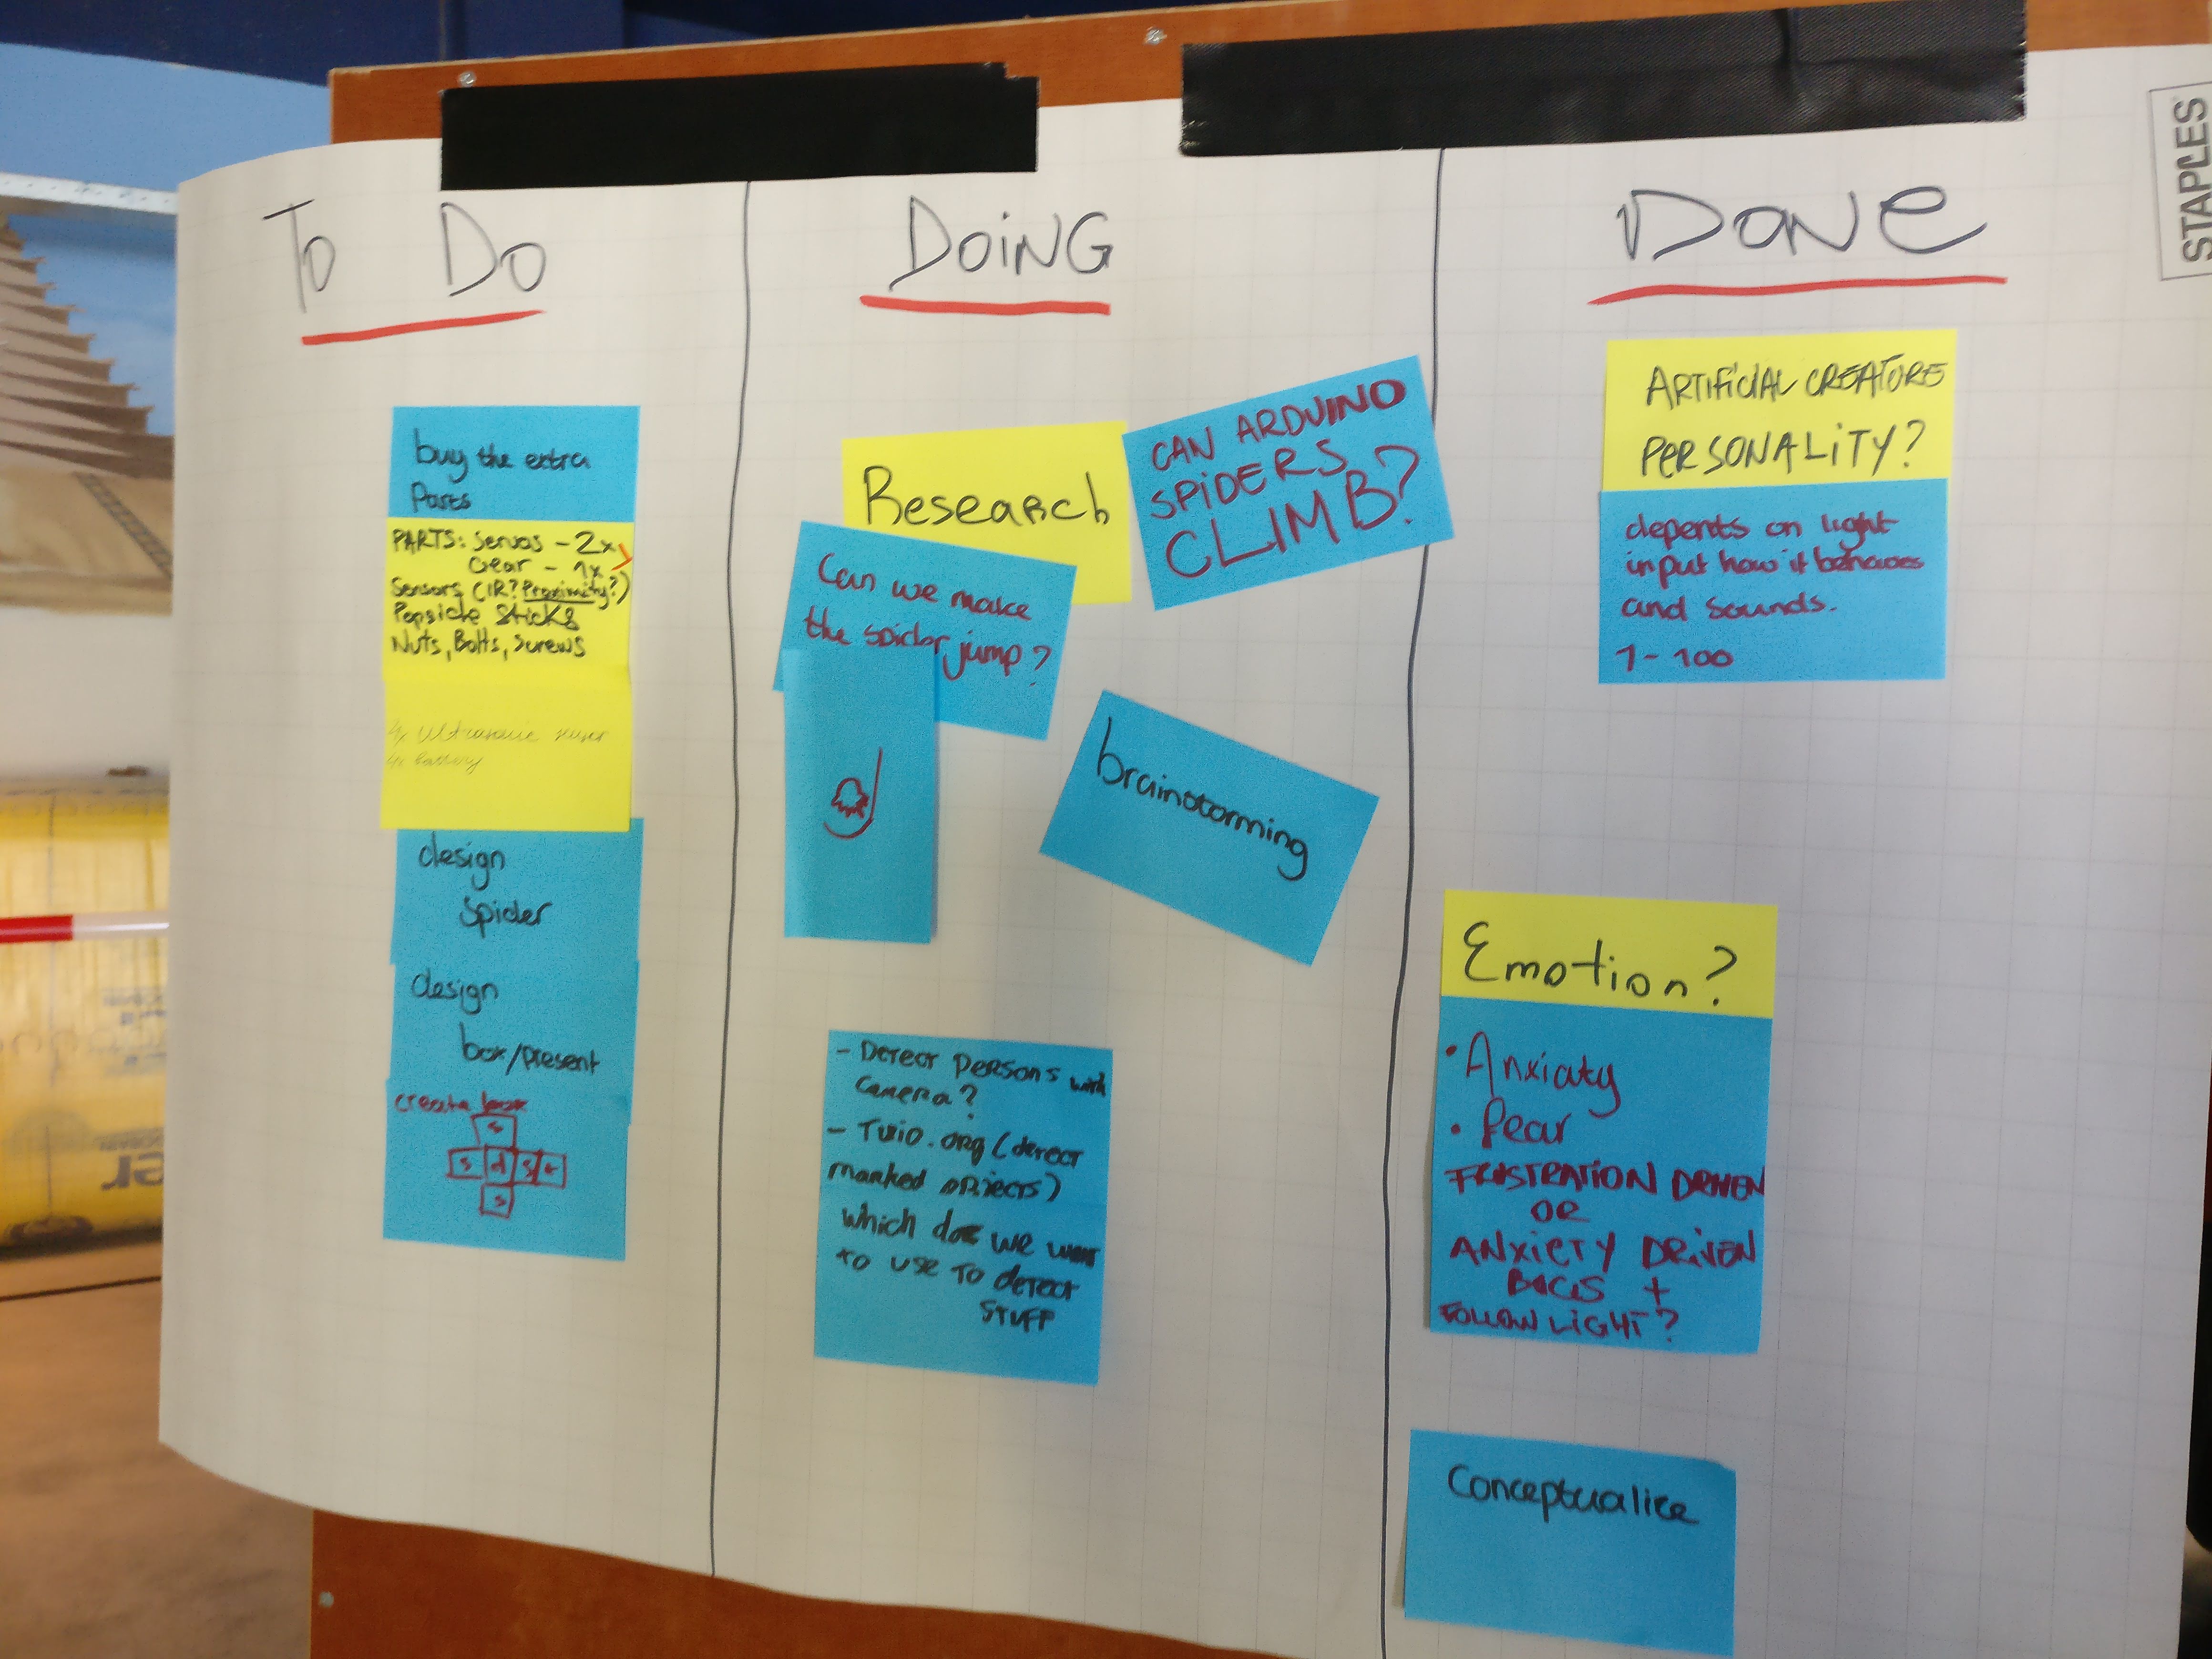 To Do
buy the extra
Parts
PARTS: Servos - 2x
Gear - 1x
Sensors (IR? Proximity?)
Popsicle Sticks
Nuts, Bolts, Screws
1x Ultrasonic
1x Battery
design
spider
design
box/present
create box
s
s d s t
s
DOiNG
Research
CAN ARDUINO
SPiDERS
CLIMB?
Can we make
the spider jump?
brainstorming
- Detect Persons with
camera?
- Tuio.org (detect
marked objects)
which do we want
to use to detect
STUFF
DoNe
ARTificiAL CREATURE
PERSONALiTY?
depents on light
input how it behaves
and sounds.
1-100
Emotion?
• Anxiaty
• fear
FRUSTRATION DRIVEN
OR
ANXiETY DRiVEN
+
FOLLOW LIGHT?
Conceptualice
STAPLES